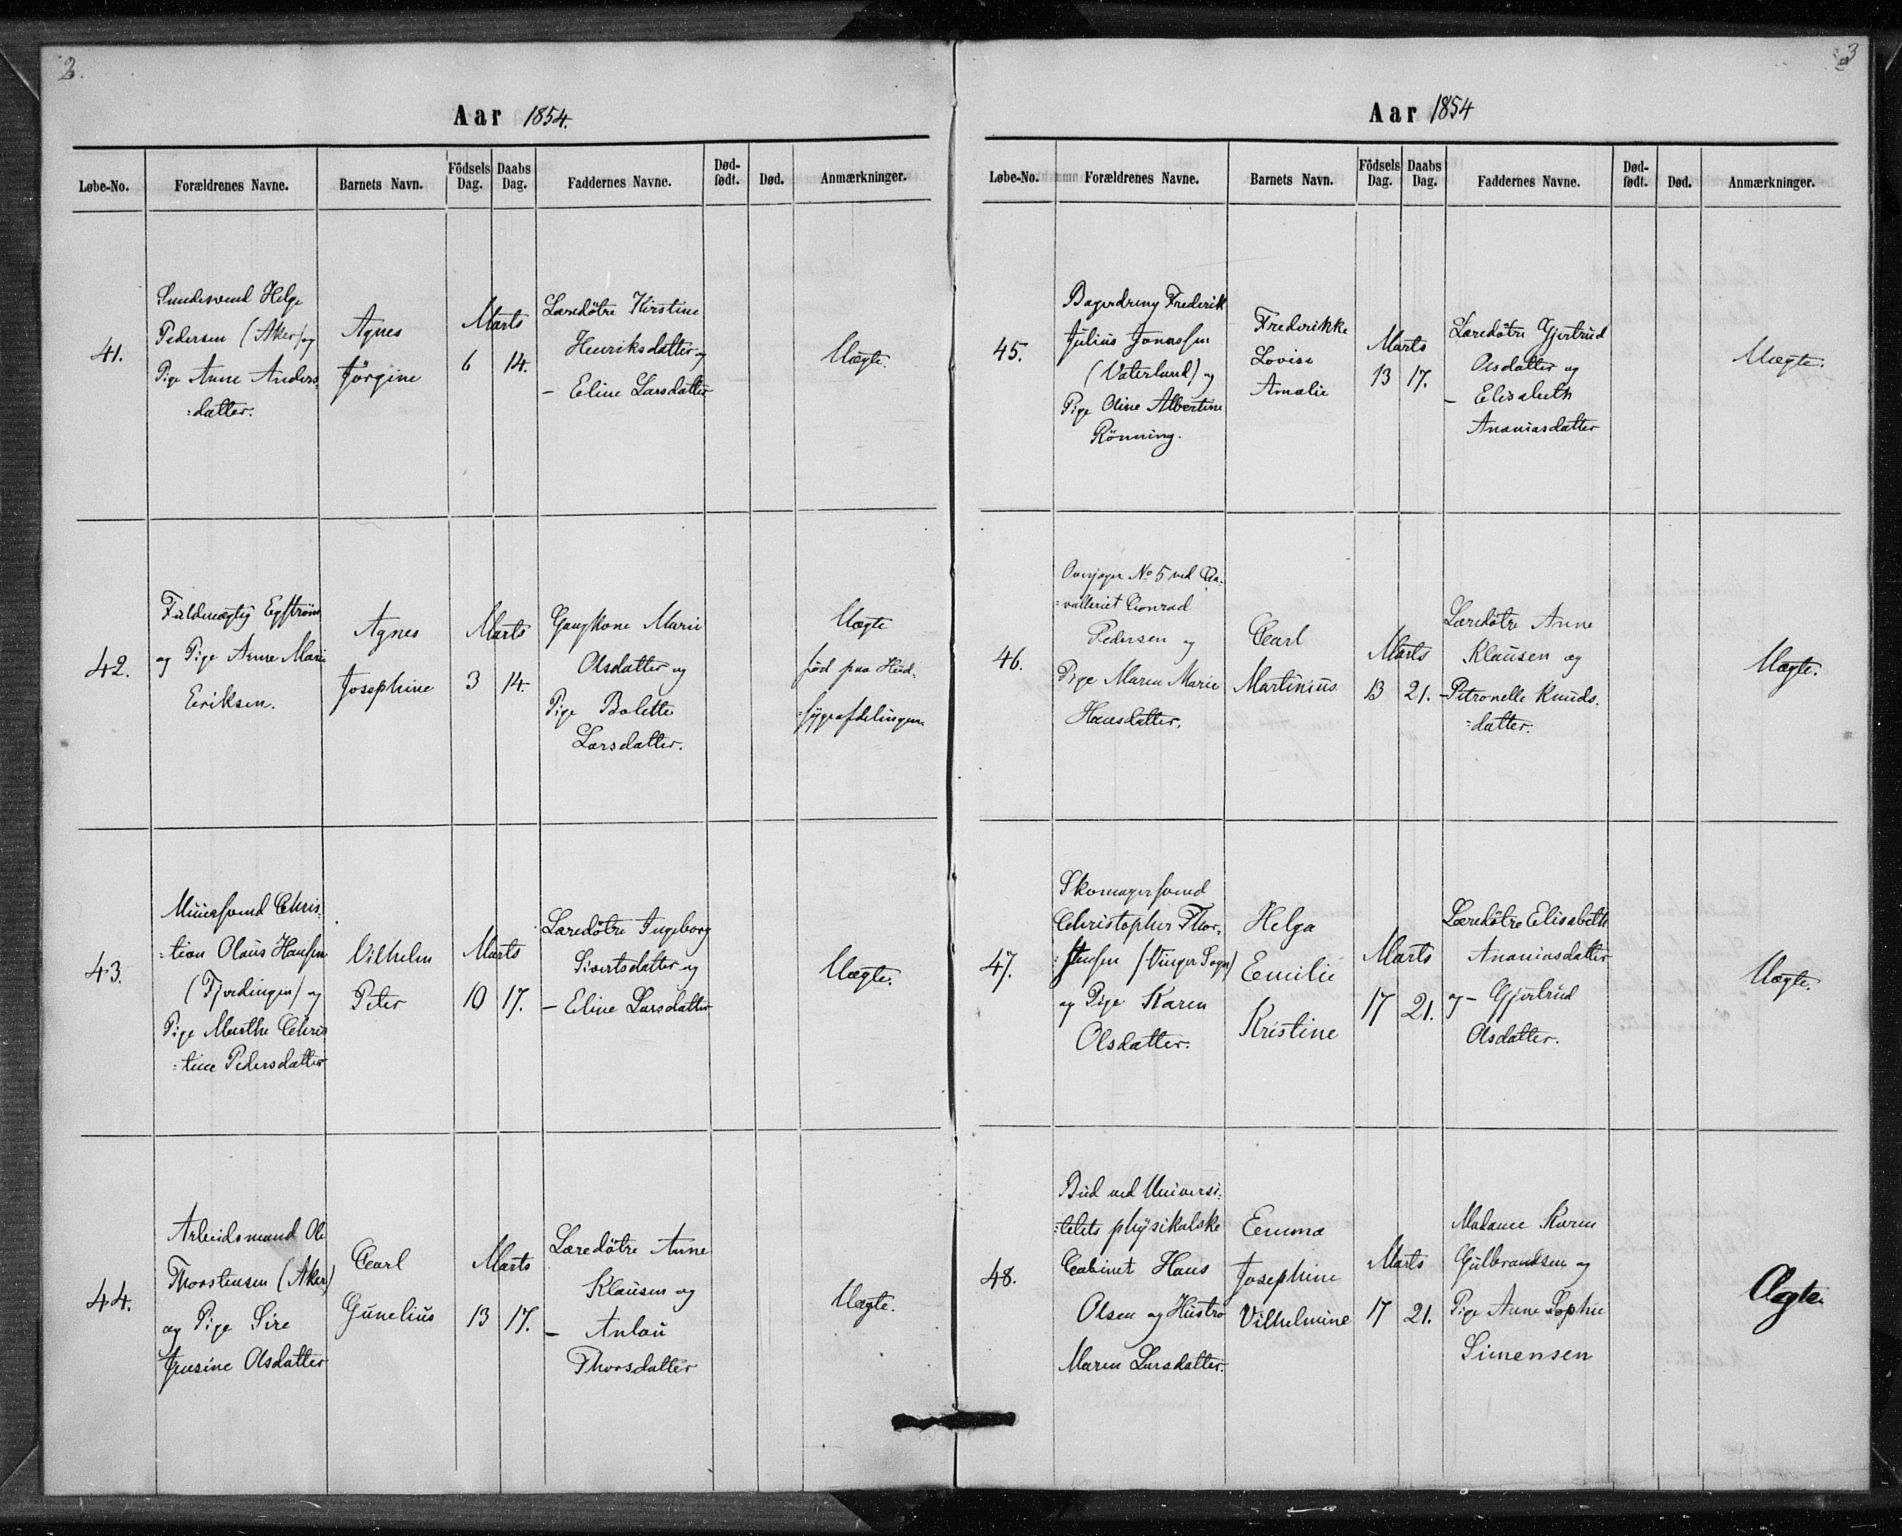 2.
Aar 1854.
Løbe-No. Forældrenes Navne. Barnets Navn. Födsels Dag. Daabs Dag. Faddernes Navne. Død-födt. Død. Anmærkninger.
41.
Helge
Pedersen (Aker) og
Pige Anne Anders
=datter.
Agnes
Jörgine
Marts
6 14.
Læredötre Kirstine
Henriksdatter og
– Eline Larsdatter
Uægte.
42.
Fuldmægtig Egström
og Pige Anne Marie
Eriksen.
Agnes
Josephine
Marts
3 14.
Gangkone Marie
Olsdatter og
Pige Bolette
Larsdatter.
Uægte
fød paa Hud-
=sygeafdelingen
43.
Muursvend Chris-
=tian Olaus Hansen
(Fjerdingen) og
Pige Marthe Chris
=tine Pedersdatter
Vilhelm
Peter
Marts
10 17.
Læredötre Ingeborg
Sivertsdatter og
– Eline Larsdatter
Uægte.
44.
Arbeidsmand Ole
Thorstensen (Aker)
og Pige Sire
Olsdatter
Carl
Gunelius
Marts
13 17.
Læredötre Anne
Klausen og
– Anlou
Thorsdatter
Uægte.
3
Aar 1854
Løbe-No. Forældrenes Navne. Barnets Navn. Födsels Dag. Daabs Dag. Faddernes Navne. Død-födt. Død. Anmærkninger.
45.
Bagerdreng Frederik
Julius Jonassen
(Vaterland) og
Pige Oline Albertine
Rönning.
Frederikke
Lovise
Amalie
Marts
13 17.
Læredötre Gjertrud
Olsdatter og
– Elisabeth
Ananiasdatter
Uægte.
46.
Overjæger No 5 ved Ca-
=valleriet Conrad
Pedersen og
Pige Maren Marie
Hansdatter.
Carl
Martinius
Marts
13 21.
Læredötre Anne
Klausen og
– Petronelle Knuds-
=datter.
Uægte.
47.
Skomagersvend
Christopher Thor-
=stensen (Vinger Sogn)
og Pige Karen
Olsdatter.
Helga
Emilie
Kristine
Marts
17 21.
Læredötre Elisabeth
Ananiasdatter
og – Gjertrud
Olsdatter.
Uægte.
48.
Bud ved Universi-
=tetets physikalske
Cabinet Hans
Olsen og Hustro
Maren Larsdatter.
Emma
Josephine
Vilhelmine
Marts
17 21.
Madame Karen
Gulbrandsen og
Pige Anne Sophie
Simensen
Ægte.